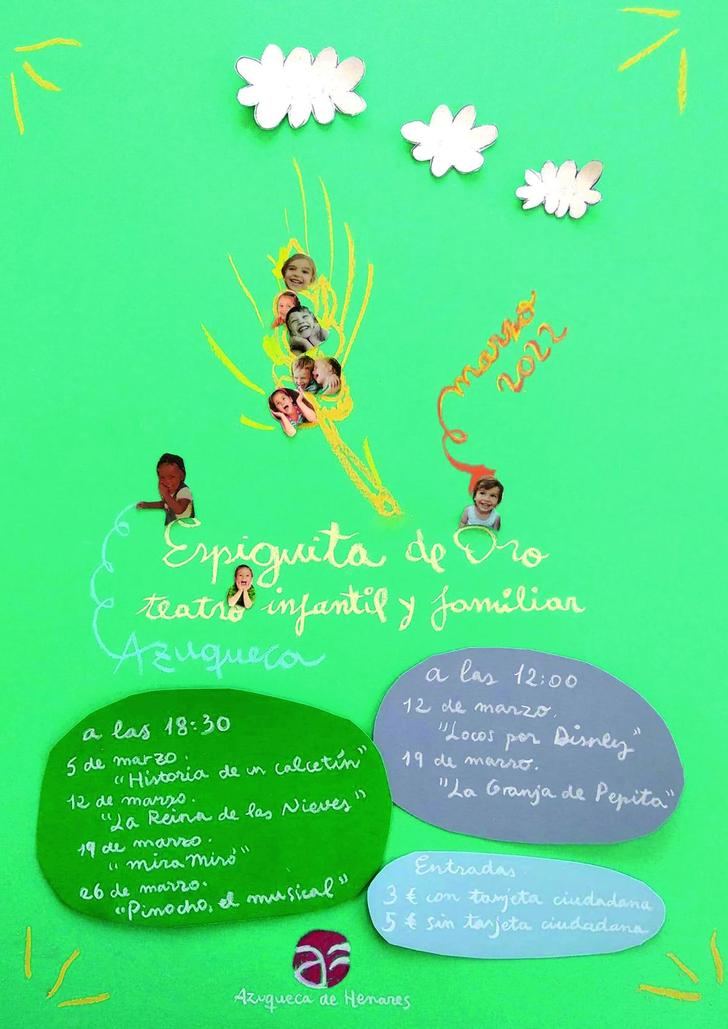 marzo
2022
Espiguita de Oro
teatro infantil y familiar
Azuqueca
a las 18:30
5 de marzo.
"Historia de un calcetín"
12 de marzo.
"La Reina de las Nieves"
19 de marzo.
"miraMiró"
26 de marzo.
"Pinocho, el musical"
a las 12:00
12 de marzo.
"Locos por Disney"
19 de marzo.
"La Granja de Pepita"
Entradas
3 € con tarjeta ciudadana
5 € sin tarjeta ciudadana
Azuqueca de Henares